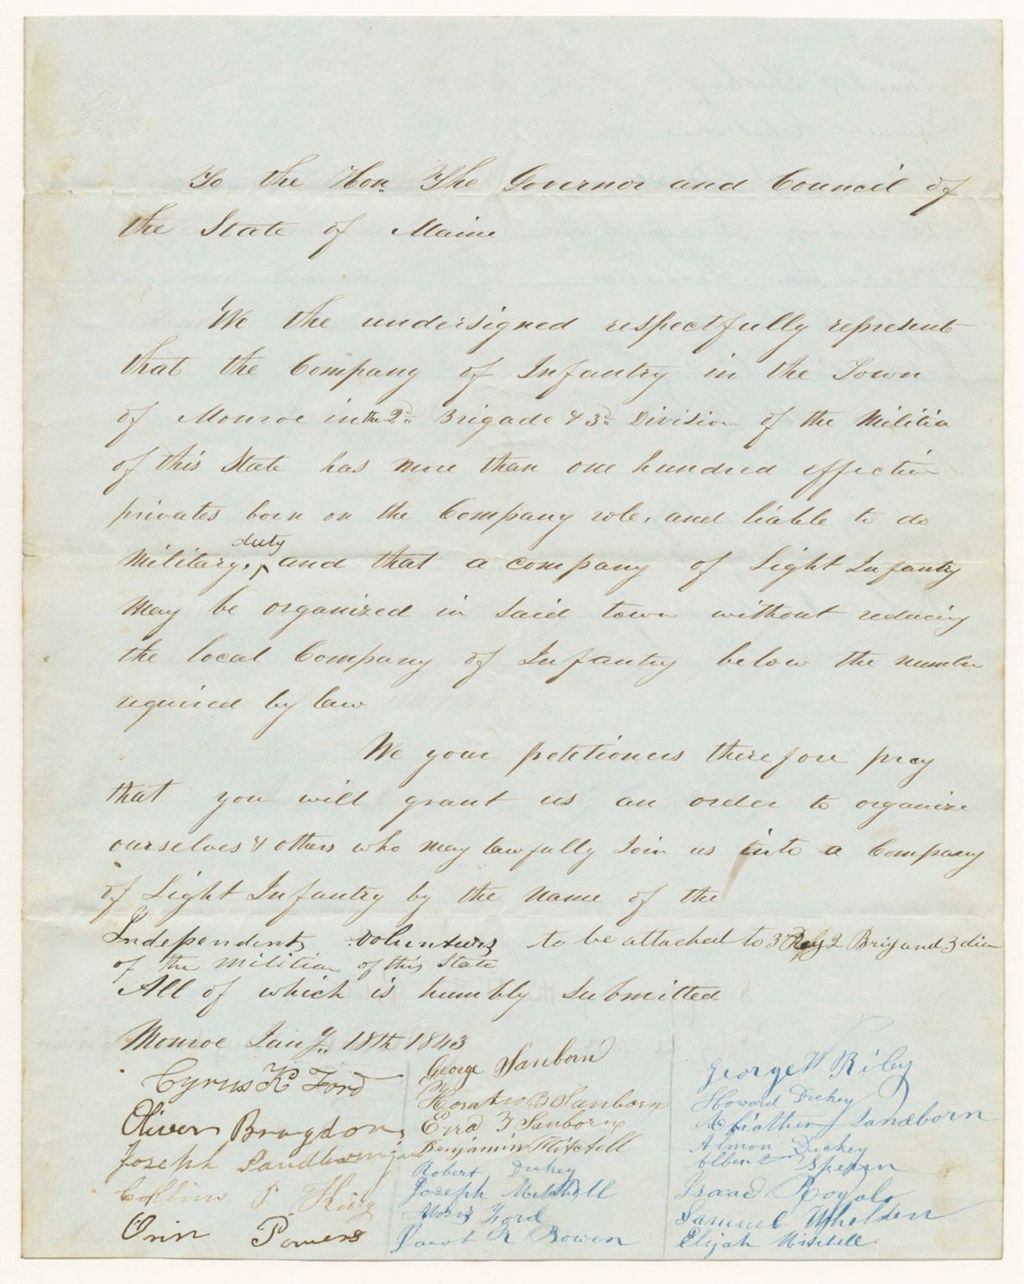 To the Hon. The Governor and Council of
the State of Maine
We the undersigned respectfully represent
that the Company of Infantry in the Town
of Monroe in the 2d. Brigade & 3d. Division of the Militia
of this State has more than one hundred effective
privates born on the Company role, and liable to do
duty
Military, ^ and that a company of Light Infantry
may be organized in said town without reducing
the local Company of Infantry below the number
required by law
We your petitioners therefore pray
that you will grant us an order to organize
ourselves & others who may lawfully Join us into a Company
of Light Infantry by the name of the
Independent Volunteers to be attached to 3d 2 Brig and 3 div
of the militia of this State
All of which is humbly submitted
Monroe Jany. 18th 1843
Cyrus K Ford
Oliver Bragdon
Joseph
Collins P King
Orin Powers
George Sanborn
Horatio B Sanborn
Benjamin Mitchell
Robert Dickey
Joseph Mitchell
Ford
Jacob R Bowen
George W Riley
Howard Dickey
Sandborn
Almon Dickey
Albert
Isaac
Samuel
Elijah Mitchell